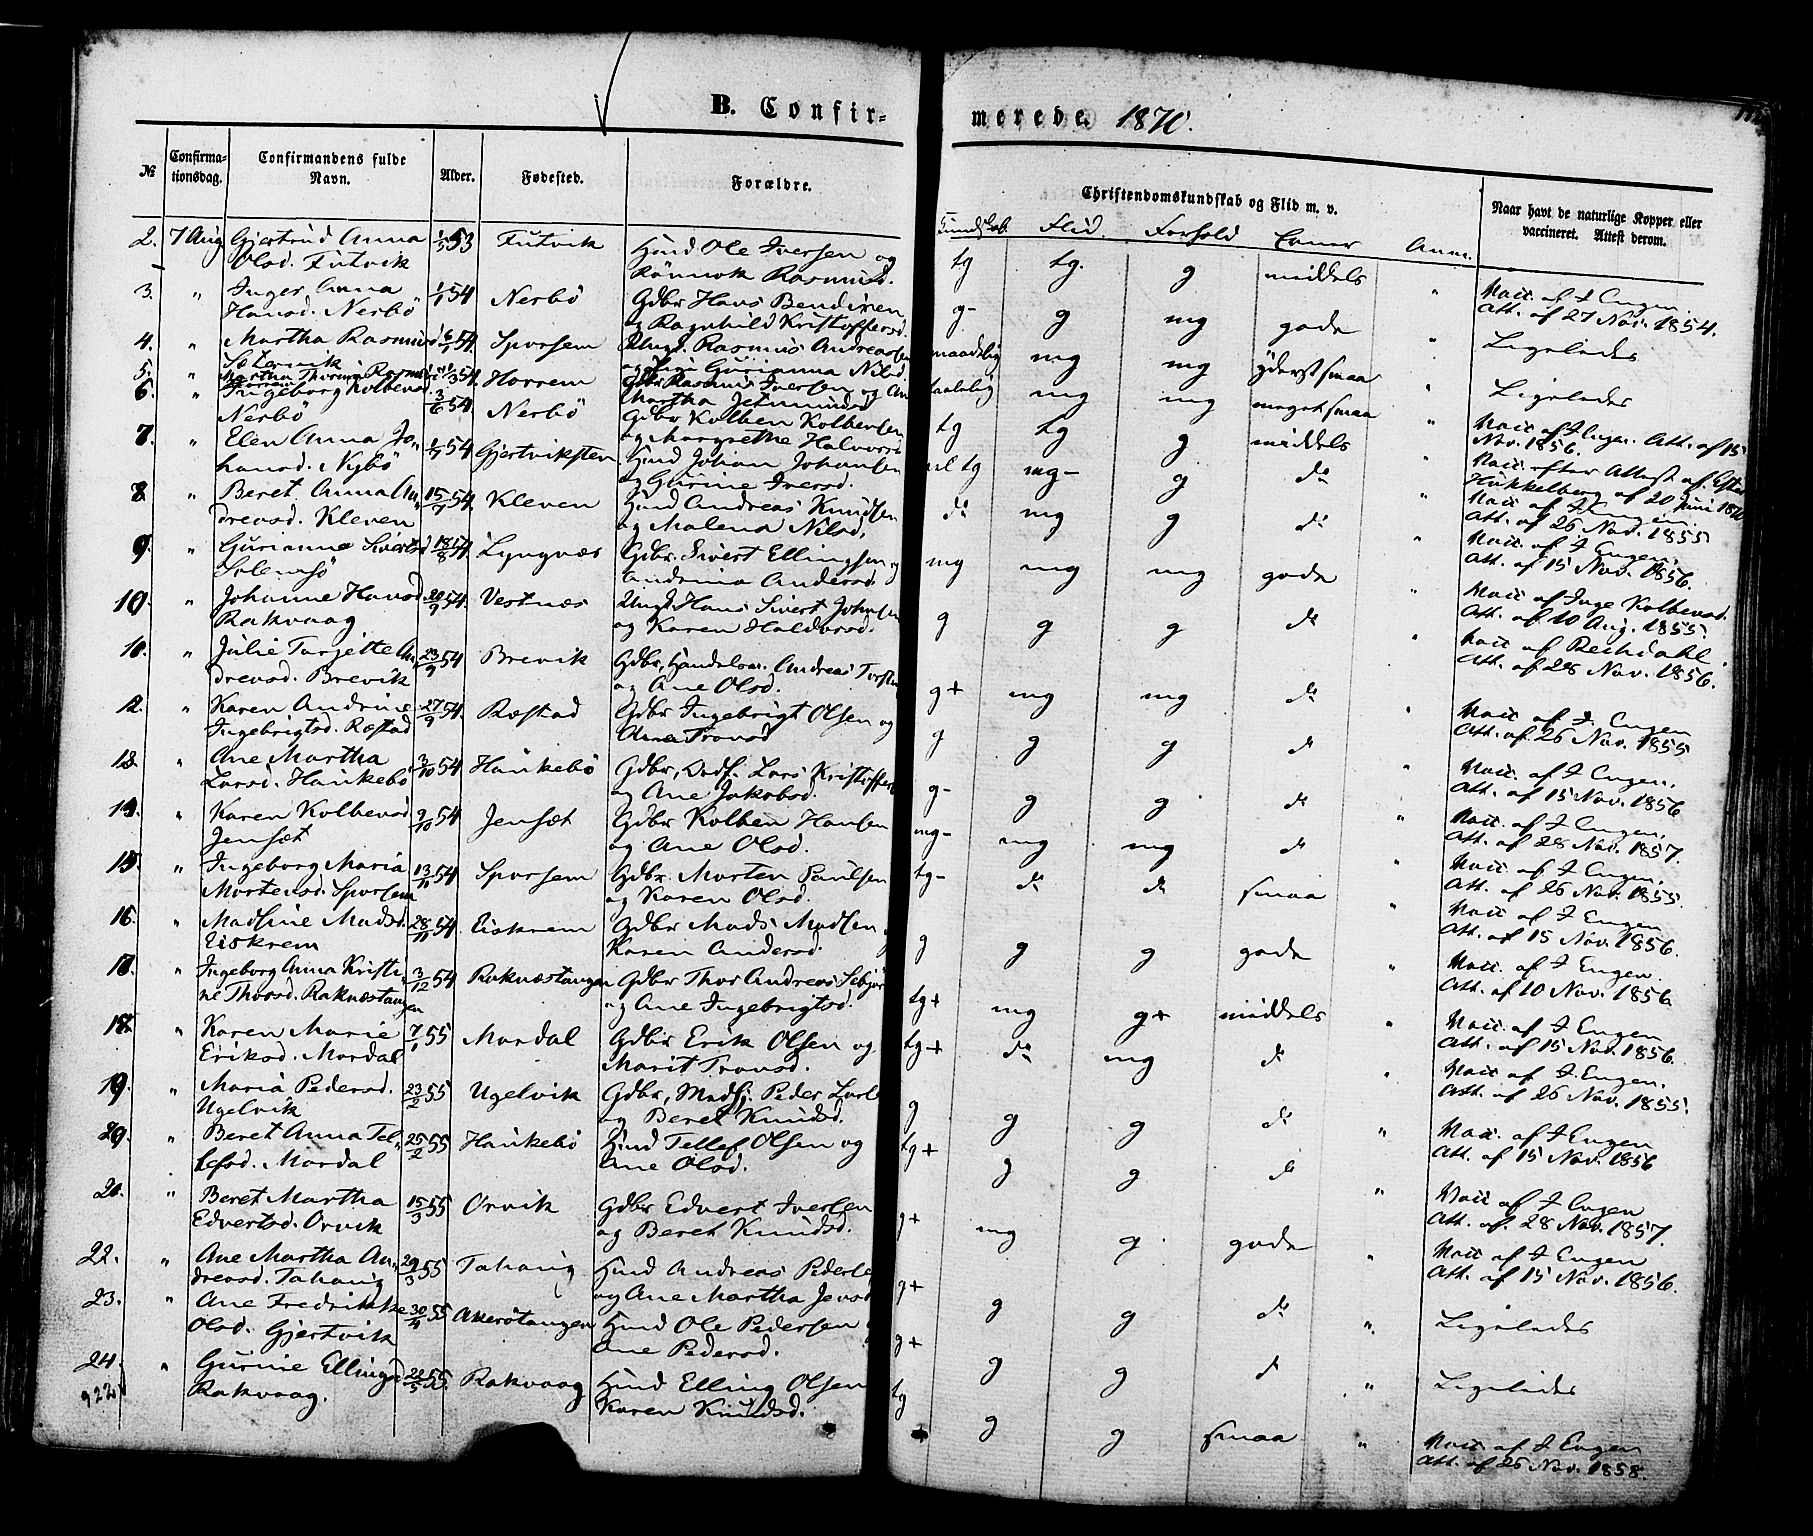 B. Confir- merede. 1870.
№ Confirma-tionsdag. Confirmandens fulde Navn. Alder. Fødested. Forældre. Christendomskundskab og Flid m. v. Naar havt de naturlige Kopper eller vaccineret. Attest derom.
Kundskab Flid. Forhold Evner Anm.
2. 7 Aug Gjertrud Anna 1/5 53 Futvik Husmd Ole Iversen og tg tg. g middels " Vacc. af J Engen.
Olsd. Futvik Rønnok Rasmusd. Att. af 27 Nov. 1854.
3. " Inger Anna 1/1 54 Nerbö Gdbr Hans Bendixen g- g mg gode " Ligeledes
Hansd. Nerbö og Ragnhild Kristoffersd.
4. " Martha Rasmusd 54 Sporsem Ungk. Rasmus Andreassen maadelig mg mg yderst smaa " Ligeledes
og Gurianna Nilsd.
5. " Martha Rasmusd 54 Horrem Gdbr Rasmus Iversen og taalelig mg mg meget smaa " Vacc. af J Engen. Att. af 15
Horrem Martha Jetmundsd Nov. 1856.
6. " Ingeborg Kolbensd. 3/6 54 Nerbö Gdbr Kolben Kolbensen tg tg g middels " Vacc. efter Attest af
Nerbö og Margrethe Halvorsd Hukkelberg af 20 Juni 1870
7. " Elen Anna Jo- 1/7 54 Gjertviksten Husmd Johan Johansen tg mg- g do " Vacc af J Engen.
hansd. Nybö og Gurine Iversd. Att. af 26 Nov. 1855
8. " Beret Anna An- 15/7 54 Kleven Husmd Andreas Knudsen do mg g do " Vacc. af J Engen.
drevsd. Kleven og Malena Nilsd. Att. af 15 Nov. 1856.
9. " Gurianna Sivertsd 18/8 54 Lyngvæs Gdbr. Sivert Ellingsen og mg mg mg gode " Vacc af Inge Kolbensd.
Solemsö Andrina Andersd. Att. af 10 Aug. 1855.
10. " Johanne Hansd 20/9 54. Vestnæs Ungk Hans Sivert Johnsen g g g do " Vacc af Rechdahl.
Rakvaag og Karen Haldorsd. Att. af 28 Nov. 1856.
11. " Julie Torjette An- 23/9 54 Brevik Gdbr, Handelsm. Andreas g+ mg mg do " Vacc. af J. Engen
drevsd. Brevik og Ane Olsd. Att. af 26 Nov. 1855
12. " Karen Andrine 27/9 54. Ræstad Gdbr Ingebrigt Olsen og g g g do " Vacc. af J Engen.
Ingebrigtsd. Ræstad Ane Tronsd Att. af 15 Nov. 1856
13. " Ane Martha 3/10 54 Haukebö Gdbr, Lars Kristoffers g- g g do " Vacc. af J Engen.
Larsd. Haukebö og Ane Jakobsd. Att. af 28 Nov. 1857.
14. " Karen Kolbensd 9/10 54 Jensæt Gdbr Kolben Hansen mg- mg mg do " Vacc af J Engen.
Jensæt og Ane Olsd. Att. af 26 Nov. 1855.
15. " Ingeborg Maria 13/11 54 Sporsem Gdbr. Morten Paulsen tg- do do smaa " Vacc. af J Engen
Mortensd. Sporsem og Karen Olsd. Att. af 15 Nov. 1856.
16. " Madsine Madsd. 28/11 54. Eiskrem Gdbr Mads Madsen g g g gode " Vacc. af J Engen.
Eiskrem Karen Andersd. Att. af 10 Nov. 1856
17. " Ingeborg Anna Kristi- 3/12 54 Raknæstangen Gdbr Thor Andreas tg+ mg g+ middels " Vacc. af J Engen
ne Thorsd. Raknæstangen og Ane Ingebrigtsd. Att. af 15 Nov. 1856.
18. " Karen Marie 7/1 55 Mordal Gdbr Erik Olsen og tg+ do mg do " Vacc. af J. Engen.
Eriksd. Mordal Marit Tronsd. Att. af 26 Nov. 1855.
19. " Maria Pedersd. 23/2 55 Ugelvik Gdbr, Peder g g g do " Vacc. af J Engen
Ugelvik og Beret Knudsd. Att. af 15 Nov. 1856
20. " Beret Anna Tel- 25/2 55 Haukebö Husmd Tellef Olsen og tg+ g g do " Vacc af J Engen
lefsd. Mordal Ane Olsd. Att. af. 28 Nov. 1857.
21. " Beret Martha 15/3 55 Orvik Gdbr Edvert Iversen g+ mg g. gode " Vacc af J Engen
Edvertsd. Orvik og Beret Knudsd. Att. af 15 Nov. 1856.
22. " Ane Martha An- 29/3 55 Tahaug Husmd Andreas Peders g+ g g do " Ligeledes
drevsd. Tahaug og Ane Martha Jensd
23. " Ane Fredrikke 30/4 55 Akerötangen Husmd Ole Pedersen g+ g g do " Ligeledes
Olsd. Gjertvik Ane Pedersd.
24. " Gurine Ellingsd 22/5 55. Rakvaag Husmd Elling Olsen tg g g smaa " Vacc af J Engen
Rakvaag. Karen Knudsd. Att. af 26 Nov. 1858.